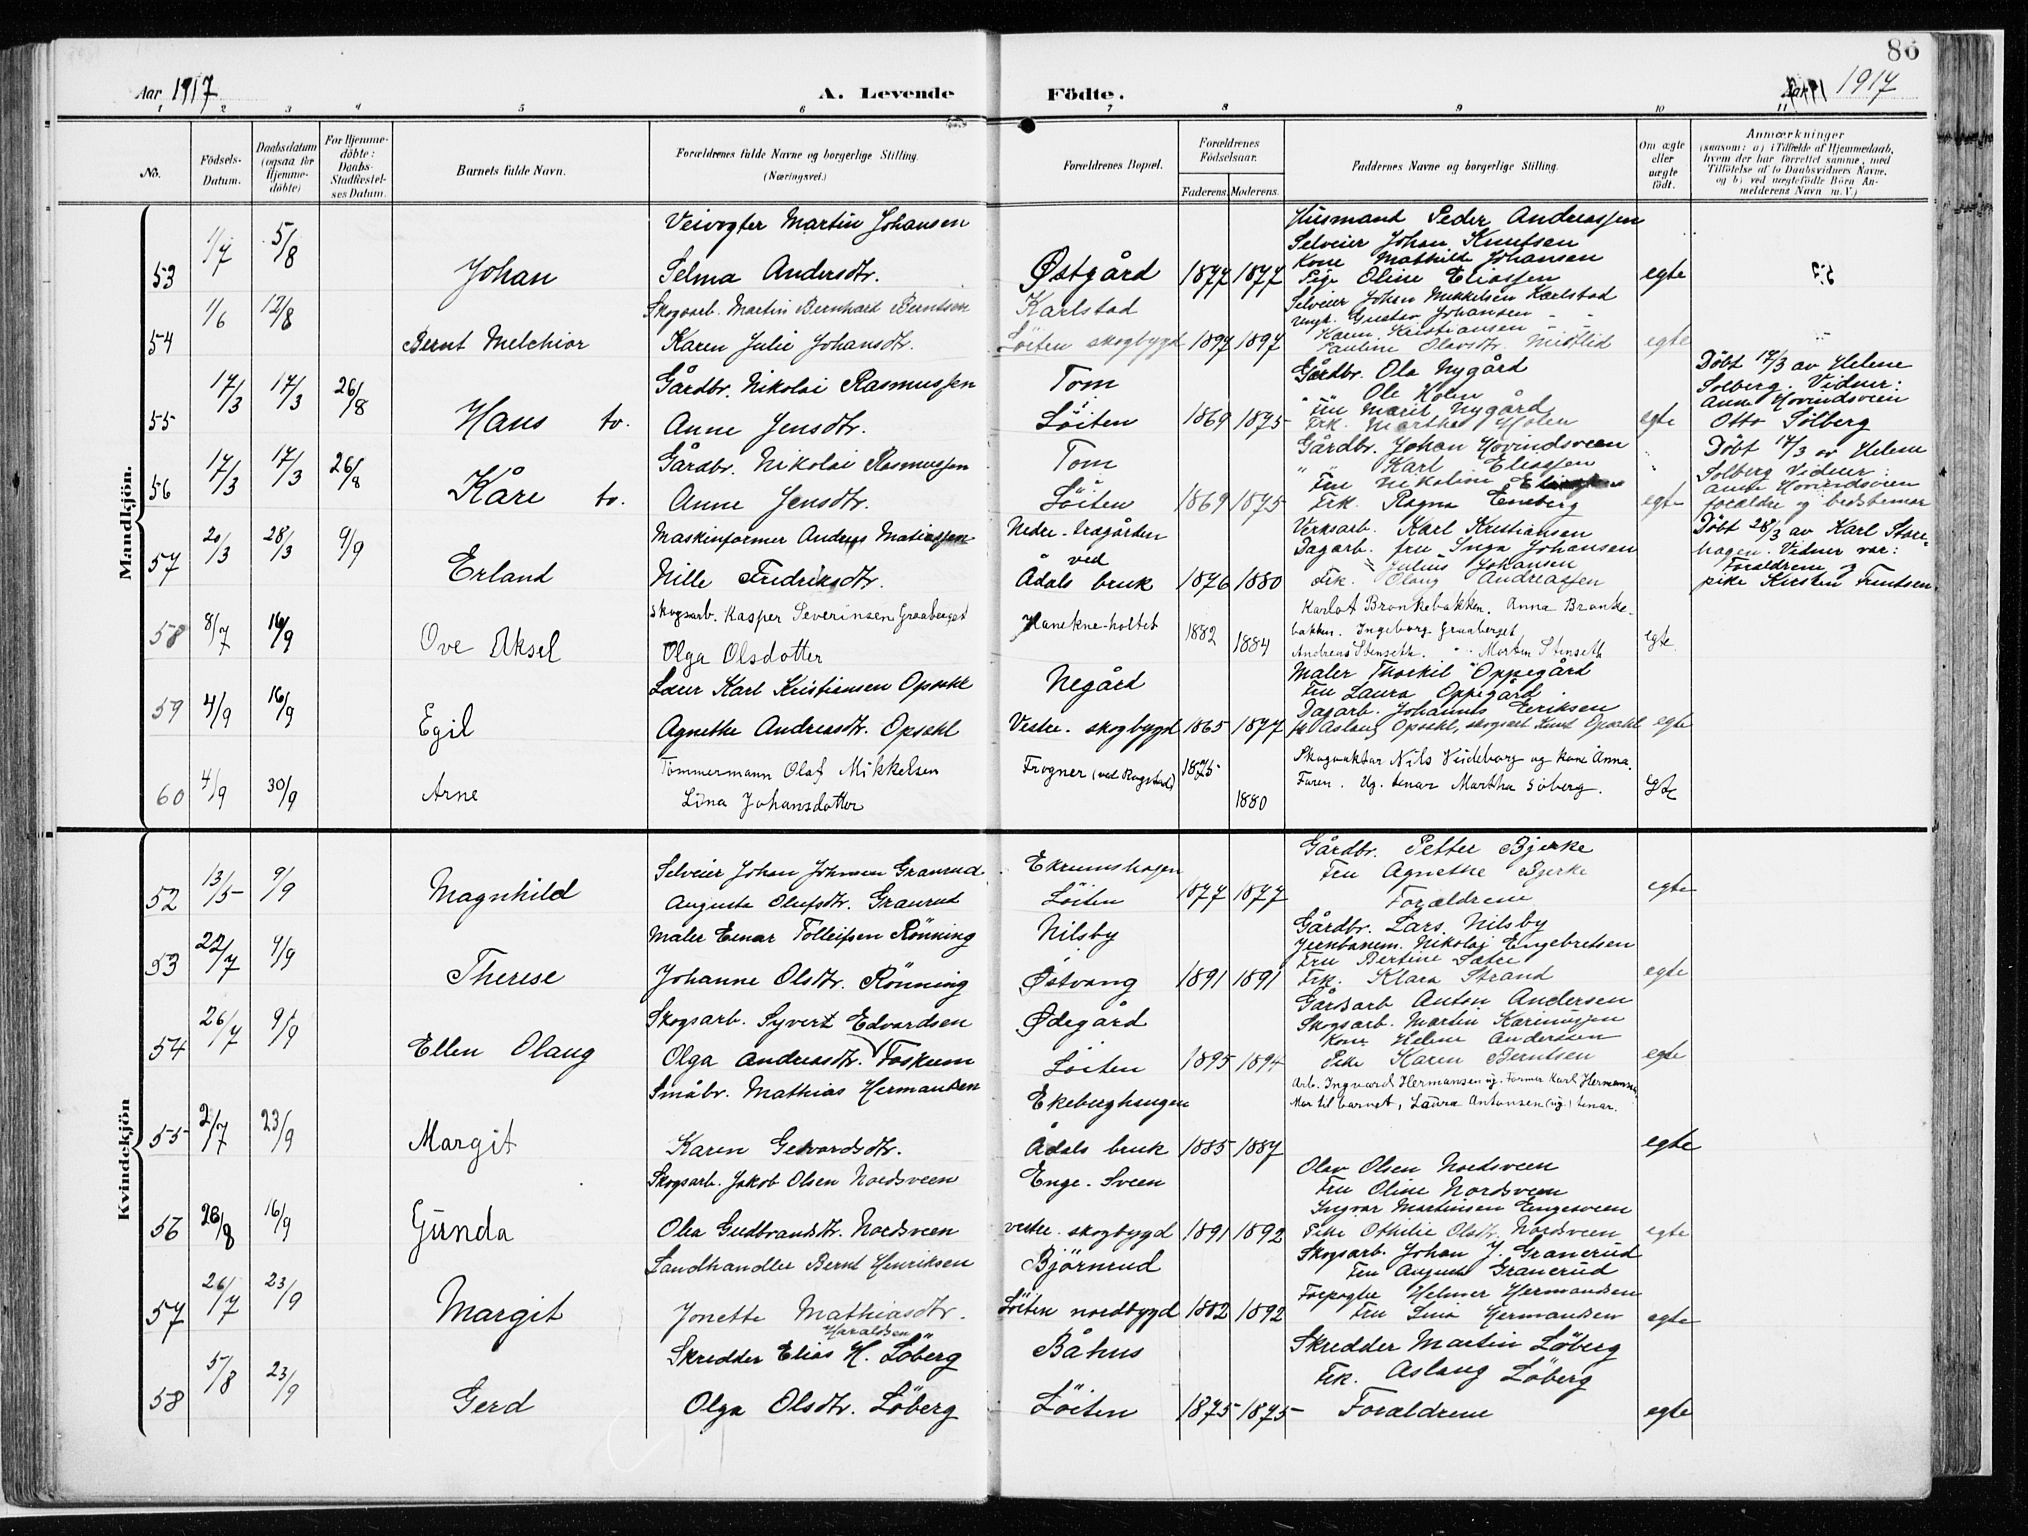 86
Aar 1917
A. Levende Födte.
1917
1 2 3 4 5 6 7 8 9 10 11
No.
Födsels-Datum.
Daabsdatum (ogsaa for Hjemme-döbte)
For Hjemme-döbte: Daabs-Stadfæstel-ses Datum.
Barnets fulde Navn.
Forældrenes fulde Navne og borgerlige Stilling. (Næringsvei.)
Forældrenes Bopæl.
Forældrenes Födselsaar.
Faderens. Moderens.
Faddernes Navne og borgerlige Stilling.
Om ægte eller uægte födt.
Anmærkninger
(saasom: a) i Tilfælde af Hjemmedaab,
hvem der har forrettet samme, med
Tilföielse af to Daabsvidners Navne,
og b) ved uægtefödte Börn An-
melderens Navn m. V.)
Mandkjön.
53 1/7 5/8 Johan
Veivogter Martin Johansen
Selma Andersdtr.
Østgård 1877 1877
Husmand Peder Andreassen
Selveier Johan Knutsen
Kone Mathilde Johansen
Pige Oline Eliassen
egte
54 1/6 12/8 Bernt Melchior
Skogsarb. Martin Bernhard Berntsen
Karen Julie Johansdtr.
Karlstad
Löiten skogbygd 1897 1897
Selveier Johan Mikkelsen Karlstad
Ungk. Gustav Johansen " "
Karen Kristiansen " "
Pauline Olavsdtr. Mistlid
egte
55 17/3 17/3 26/8 Hans tv.
Gårdbr. Nikolai Rasmussen
Anne Jensdtr.
Tom
Löiten 1869 1875
Gårdbr. Ola Nygård
" Ole Holen
Fru Marit Nygård
Frk. Martha Holen
egte
Döbt 17/3 av Helene
Solberg. Vidner:
Anne Hovindsveen
Otto Solberg
56 17/3 17/3 26/8 Kåre tv.
Gårdbr. Nikolai Rasmussen
Anne Jensdtr.
Tom
Löiten 1869 1875
Gårdbr. Johan Hovindsveen
" Karl Eliassen
Fru Nikoline
Frk. Ragna Eneberg
egte
Döbt 17/3 av Helene
Solberg Vidner:
Anne Hovindsveen
foreldre og bedstemor
57 20/3 28/3 9/9 Erland
Maskinformer Anders Matiassen
Nille Fredriksdtr.
Nedre
ved
Ådals bruk 1876 1880
Verksarb. Karl Kristiansen
Dagarb. fru Inga Johansen
" Julius Johansen
Frk. Olaug Andreassen
Döbt 28/3 av Karl Stor-
hagen. Vidner var:
Foreldrene og
pike Kirsten
58 8/7 16/9 Ove Aksel
Skogsarb. Kasper Severinsen Graaberget
Olga Olsdotter
Hanekne-holtet 1882 1884
Karlot Bronkebakken. Anna Bronke-
bakken. Ingeborg Graaberget
Andreas Stenseth. " Morten Stenseth
egte
59 4/9 16/9 Egil
Lærer Karl Kristiansen Opsahl
Agnethe Andreasdtr. Opsahl
Negård
Vestre. skogbygd 1865 1877
Maler Thorkil Oppegård
Fru Laura Oppegård
Dagarb. Johannes Eriksen
fr. Aslaug Opsahl, skogsarb Knut Opsahl
egte
60 4/9 30/9 Arne
Tømmermann Olaf Mikkelsen
Lina Johansdotter
Frogner (ved Rogstad) 1875 1880
Skogvaktar Nils Videborg og kone Anna.
Faren. Ug. tenar Martha Söberg.
egte
Kvindekjön
52 13/5 9/9 Magnhild
Selveier Johan Johnsen Granrud
Augusta Olufsdtr. Granrud
Ekrumshagen
Löiten 1877 1877
Gårdbr. Petter Bjerke
Fru Agnethe Bjerke
Forældrene
egte
53 22/7 9/9 Therese
Maler Einar Tolleifsen Rönning
Johanne Olsdtr. Rönning
Nilsby
Østvang 1891 1891
Gårdbr. Lars Nilsby
Jernbanem. Nikolai Engebretsen
Fru Bertine Sætre
Frk. Klara Strand
egte
54 26/7 9/9 Ellen Olaug
Skogsarb. Syvert Edvardsen
Olga Andreasdtr. Foskum
Ødegård
Löiten 1895 1894
Gårdsarb Anton Andersen
Skogsarb. Martin Karinussen
Kone Helene Anderssen
Pike Karen Berntsen
egte
55 2/7 23/9 Margit
Småbr. Mathias Hermansen
Karen Gedvardsdtr.
Ekeberghaugen
Ådals bruk 1885 1887
Arb. Ingvard Hermansen og. Former Karl Hermansen
Mor til barnet, Laura Antonsen (ug.) tenar.
egte
56 26/8 16/9 Gunda
Skogsarb. Jakob Olsen Nordsveen
Olea Gudbrandsdtr. Nordsveen
Enge. Sveen
vestre. skogbygd 1891 1892
Olav Olsen Nordsveen
Fru Oline Nordsveen
Ingvar Martinsen Engesveen
Pike Othilie Olsdtr. Nordsveen
egte
57 26/7 23/9 Margit
Landhandler Bernt Henriksen
Jonette Mathiasdtr.
Björnrud
Löiten nordbygd 1882 1892
Skogsarb. Johan J. Granerud
Fru Augusta Granerud
Forpagter Helmer Hermansen
Fru Lina Hermansen
egte
58 5/8 23/9 Gerd
Haraldsen
Skredder Elias H. Löberg
Olga Olsdtr. Löberg
Båhus
Löiten 1875 1875
Skredder Martin Löberg
Frk. Aslaug Löberg
Foraldrene
egte